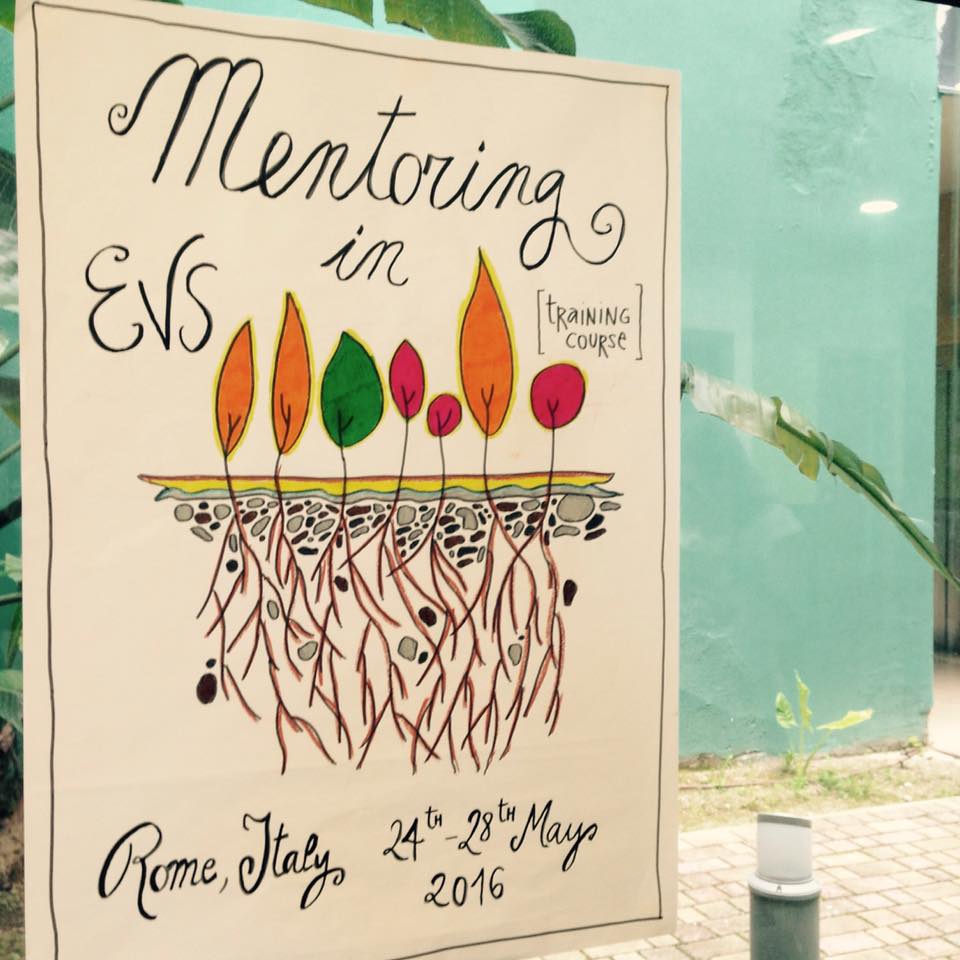 Mentoring
in
EVS
[training
course]
Rome, Italy
24TH-28TH May
2016
A